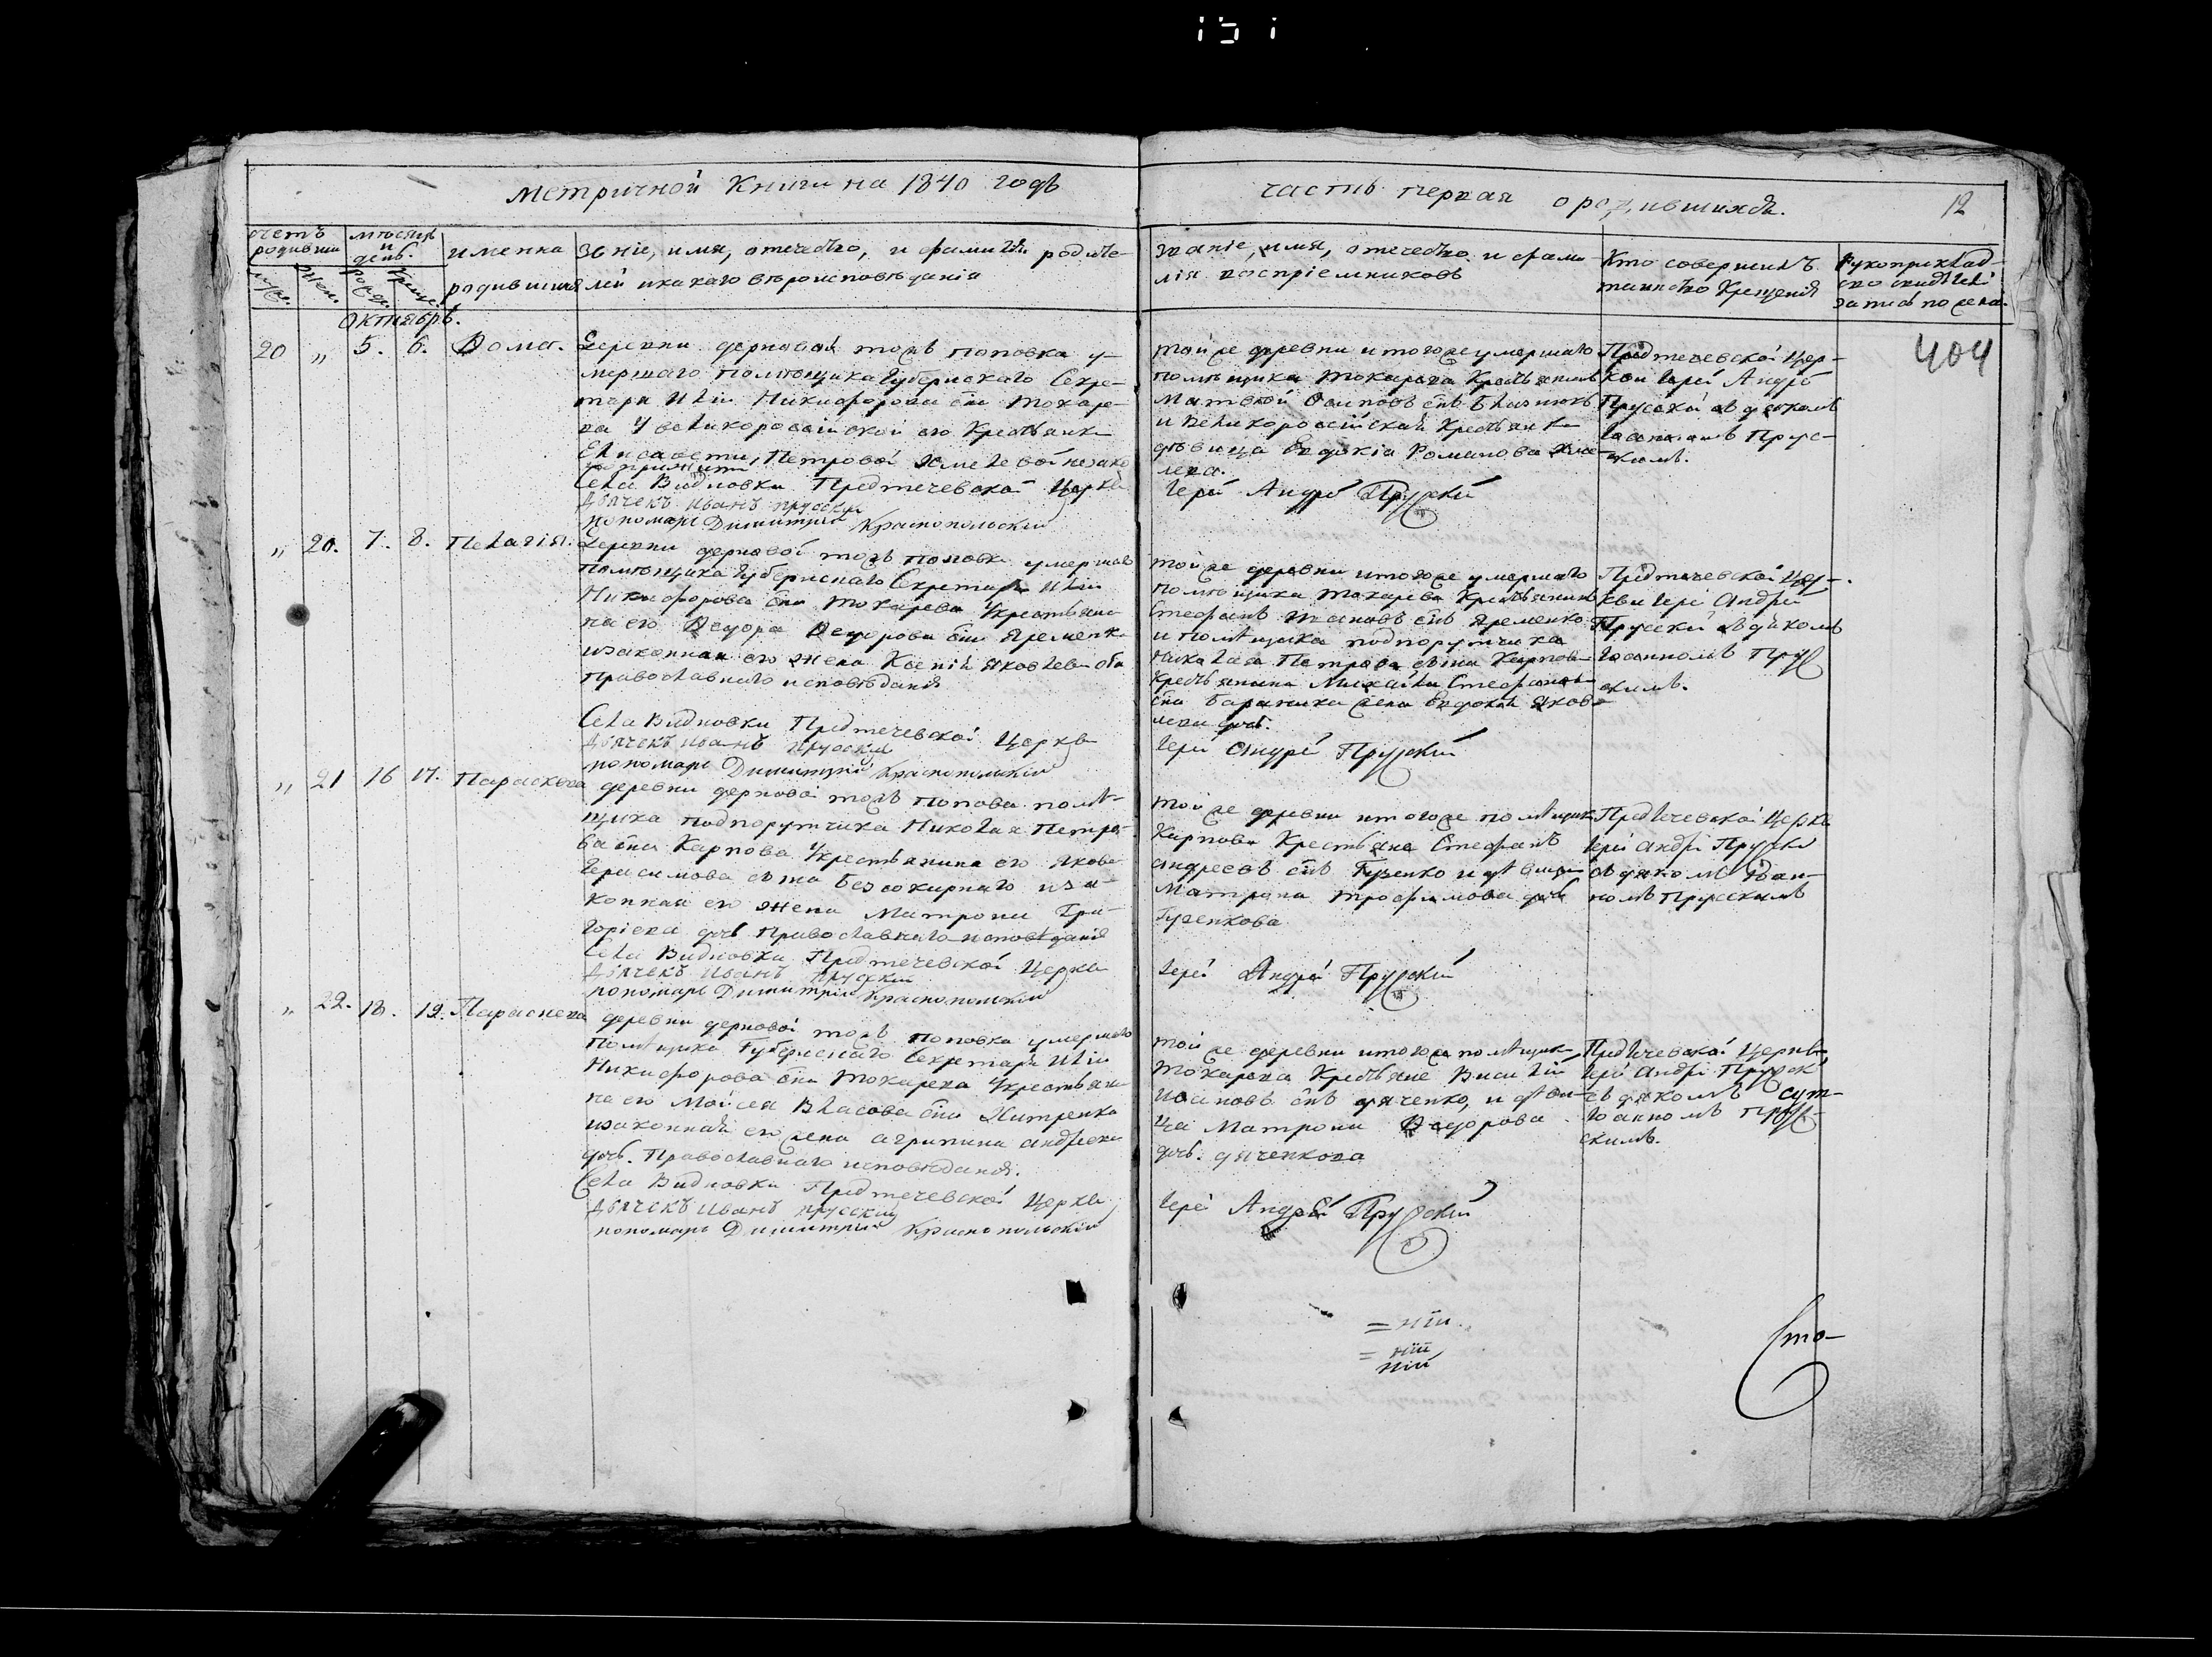 151
Метричной Книги на 1840 годъ
часть первая о родившихся.
12
счетъ родивши
мѣсяцъ и день.
имена родившихся
Званіе, имя, отечество, и фамилія родите-
лей и какаго вѣроисповѣданія
муж.
Жен.
рожд.
крещ.
Званіе, имя, отечество и фами-
лія воспріемниковъ
Кто совершилъ
таинство Крещенія
Рукоприклад-
ство свидѣтелей
записи по жела.
Октябрь.
404
20 „ 5. 6. Ѳома.
Деревни дерновой тожъ поповка у-
мершаго помѣщика Губернскаго Секре-
таря Иліи Никифорова сна Токаре-
ва у великороссійской его Крестьянки
Елисаветы Петровой
Села Видновки Предтечевской Церкви
Дьячекъ Иванъ Прускій
пономарь Димитрій Краснопольскій
той же деревни и того же умершаго
помѣщика Токарева Крестьянинъ
Матвѣй Осиповъ снъ
и Великороссійская Крестьянка
дѣвица Евдокія Романова
Іерей Андрей Прускій
Предтечевской Цер-
кви Іерей Андрей
Прускій съ дьякомъ
Іоанномъ Прус-
кимъ.
„ 20. 7. 8. Пелагія.
Деревни дерновой тожъ поповка умершаго
помѣщика Губернскаго Секретаря Иліи
Никифорова сна Токарева у крестьяни-
на его Ѳедора Ѳедорова сна Яременка
и законная его жена Ксенія Яковлева оба
православнаго исповѣданія
Села Видновки Предтечевской Церкви
Дьячекъ Иванъ Прускій
пономарь Димитрій Краснопольскій
той же деревни и того же умершаго
помѣщика Токарева Крестьянинъ
Стефанъ Ивановъ снъ Яременко
и помѣщика подпорутчика
Николая Петрова сына Карпова
крестьянина Михайла Стефанова
сна Бараника жена Евдокія Яков-
лева дочь.
Іерей Андрей Прускій
Предтечевской Цер-
кви Іерей Андрей
Прускій съ дьякомъ
Іоанномъ Прус
кимъ.
„ 21 16 17. Параскева
деревни дерновой тожъ попова помѣ-
щика подпорутчика Николая Петро-
ва сна Карпова у крестьянина его Якова
Герасимова сына Безсокирнаго и за-
конная его жена Матрона Гри-
горіева дочь Православнаго исповѣданія
Села Видновки Предтечевской Церкви
Дьячекъ Иванъ Прускій
пономарь Димитрій Краснопольскій
той же деревни и того же помѣщика
Карпова Крестьяне Стефанъ
Андреевъ снъ Гузенко и дѣвица
Матрона Трофимова дочь
Гузенкова
Іерей Андрей Прускій
Предтечевской Церкви
Іерей Андрей Прускій
съ дьякомъ Іоан-
номъ Прускимъ
„ 22. 18. 19. Параскева
деревни дерновой тожъ поповка умершаго
помѣщика Губернскаго Секретаря Иліи
Никифорова сна Токарева у крестьяни-
на его Моисея Власова сна Хитренка
и законная его жена Агрипина Андреева
дочь. Православнаго исповѣданія.
Села Видновки Предтечевской Церкви
Дьячекъ Иванъ Прускій
пономарь Димитрій Краснопольскій
той же деревни и того же помѣщика
Токарева Крестьяне Василій
Ивановъ снъ дяченко, и дѣви-
ца Матрона Ѳедорова
дочь. дяченкова
Іерей Андрей Прускій
Предтечевской Церкви
Іерей Андрей Прускій
съ дьякомъ
Іоанномъ Прус-
кимъ.
= ніи.
= ніи
ніи
Сто-